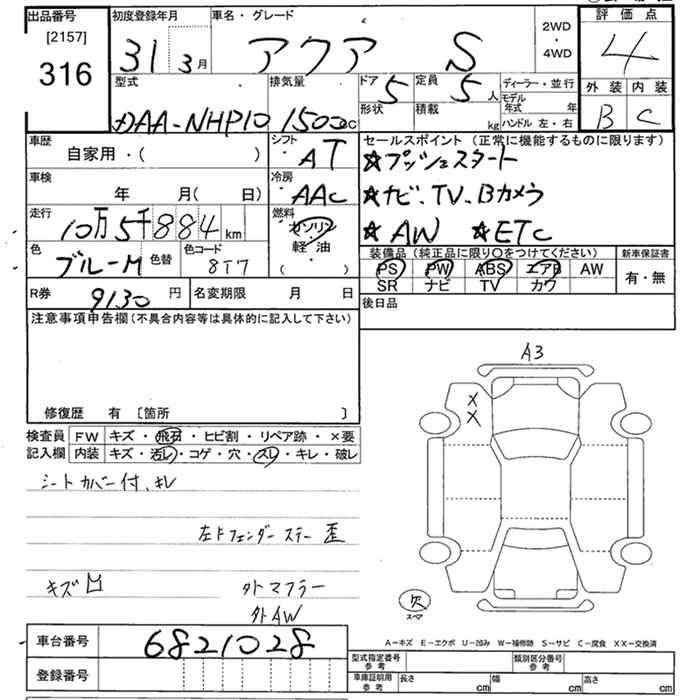 出品番号
[2157]
316
初度登録年月
31 3月
車名・グレード
アクア S
2WD
・
4WD
評価点
4
外装 内装
B C
型式
DAA-NHP10
排気量
1500cc
ドア 5
形状
定員 5人
積載 kg
ディーラー・並行
モデル年式 年
ハンドル 左・右
車歴
自家用・( )
シフト
AT
車検
年 月( 日)
冷房
AAC
走行
10万5千884km
燃料
ガソリン
軽油
( )
色
ブルーM
色替
色コード
8T7
セールスポイント (正常に機能するものに限ります)
★プッシュスタート
★ナビ、TV、Bカメラ
★AW ★ETC
装備品 (純正品に限り○をつけてください)
PS PW ABS エアB AW
SR ナビ TV カワ
新車保証書
有・無
R券 9130円
名変期限 月 日
後日品
注意事項申告欄(不具合内容等は具体的に記入して下さい)
修復歴 有 〔箇所 〕
検査員
記入欄
FW キズ・飛石・ヒビ割・リペア跡・×要
内装 キズ・汚レ・コゲ・穴・スレ・キレ・破レ
シートカバー付、キレ
左Fフェンダーステー歪
キズ凹
外マフラー
外AW
A3
×
×
欠
スペア
A-キズ E-エクボ U-凹み W-補修跡 S-サビ C-腐食 XX-交換済
車台番号 6821028
登録番号
型式指定番号
参考
類別区分番号
参考
車庫証明用
参考
長さ cm 幅 cm 高さ cm